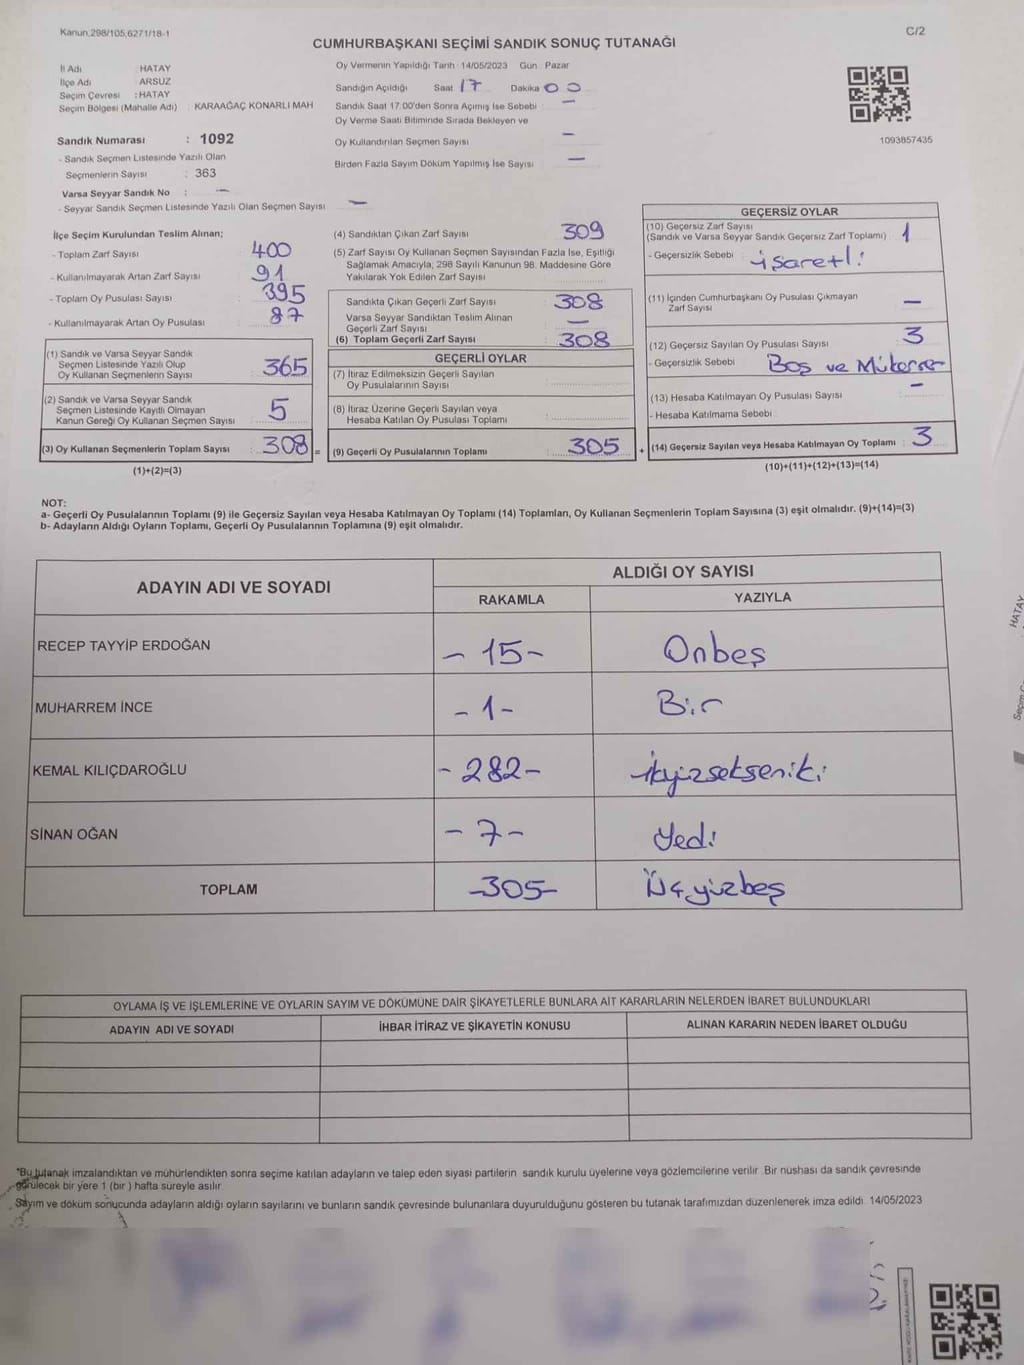 Kanun,298/105,6271/18-1
C/2
CUMHURBAŞKANI SEÇİMİ SANDIK SONUÇ TUTANAĞI
İl Adı : HATAY
İlçe Adı : ARSUZ
Seçim Çevresi : HATAY
Seçim Bölgesi (Mahalle Adı) : KARAAĞAÇ KONARLI MAH
Sandık Numarası : 1092
- Sandık Seçmen Listesinde Yazılı Olan
Seçmenlerin Sayısı : 363
Varsa Seyyar Sandık No : —
- Seyyar Sandık Seçmen Listesinde Yazılı Olan Seçmen Sayısı —
Oy Vermenin Yapıldığı Tarih : 14/05/2023 Gün : Pazar
Sandığın Açıldığı Saat 17 Dakika 00
Sandık Saat 17.00'den Sonra Açımış İse Sebebi : —
Oy Verme Saati Bitiminde Sırada Bekleyen ve
Oy Kullandırılan Seçmen Sayısı —
Birden Fazla Sayım Döküm Yapılmış İse Sayısı : —
1093857435
İlçe Seçim Kurulundan Teslim Alınan;
- Toplam Zarf Sayısı : 400
- Kullanılmayarak Artan Zarf Sayısı : 91
- Toplam Oy Pusulası Sayısı : 395
- Kullanılmayarak Artan Oy Pusulası : 87
(1) Sandık ve Varsa Seyyar Sandık
Seçmen Listesinde Yazılı Olup
Oy Kullanan Seçmenlerin Sayısı 365
(2) Sandık ve Varsa Seyyar Sandık
Seçmen Listesinde Kayıtlı Olmayan
Kanun Gereği Oy Kullanan Seçmen Sayısı 5
(3) Oy Kullanan Seçmenlerin Toplam Sayısı : 308 =
(1)+(2)=(3)
(4) Sandıktan Çıkan Zarf Sayısı : 309
(5) Zarf Sayısı Oy Kullanan Seçmen Sayısından Fazla İse, Eşitliği
Sağlamak Amacıyla, 298 Sayılı Kanunun 98. Maddesine Göre
Yakılarak Yok Edilen Zarf Sayısı
Sandıkta Çıkan Geçerli Zarf Sayısı : 308
Varsa Seyyar Sandıktan Teslim Alınan
Geçerli Zarf Sayısı —
(6) Toplam Geçerli Zarf Sayısı : 308
GEÇERLİ OYLAR
(7) İtiraz Edilmeksizin Geçerli Sayılan
Oy Pusulalarının Sayısı
(8) İtiraz Üzerine Geçerli Sayılan veya
Hesaba Katılan Oy Pusulası Toplamı
(9) Geçerli Oy Pusulalarının Toplamı : 305 +
GEÇERSİZ OYLAR
(10) Geçersiz Zarf Sayısı
(Sandık ve Varsa Seyyar Sandık Geçersiz Zarf Toplamı) : 1
- Geçersizlik Sebebi : işaretli
(11) İçinden Cumhurbaşkanı Oy Pusulası Çıkmayan
Zarf Sayısı —
(12) Geçersiz Sayılan Oy Pusulası Sayısı : 3
- Geçersizlik Sebebi : Boş ve
(13) Hesaba Katılmayan Oy Pusulası Sayısı : —
- Hesaba Katılmama Sebebi :
(14) Geçersiz Sayılan veya Hesaba Katılmayan Oy Toplamı : 3
(10)+(11)+(12)+(13)=(14)
NOT:
a- Geçerli Oy Pusulalarının Toplamı (9) ile Geçersiz Sayılan veya Hesaba Katılmayan Oy Toplamı (14) Toplamları, Oy Kullanan Seçmenlerin Toplam Sayısına (3) eşit olmalıdır. (9)+(14)=(3)
b- Adayların Aldığı Oyların Toplamı, Geçerli Oy Pusulalarının Toplamına (9) eşit olmalıdır.
ADAYIN ADI VE SOYADI
ALDIĞI OY SAYISI
RAKAMLA YAZIYLA
RECEP TAYYİP ERDOĞAN - 15 - Onbeş
MUHARREM İNCE - 1 - Bir
KEMAL KILIÇDAROĞLU - 282 - ikiyüzsekseniki
SİNAN OĞAN - 7 - Yedi
TOPLAM -305- Üçyüzbeş
OYLAMA İŞ VE İŞLEMLERİNE VE OYLARIN SAYIM VE DÖKÜMÜNE DAİR ŞİKAYETLERLE BUNLARA AİT KARARLARIN NELERDEN İBARET BULUNDUKLARI
ADAYIN ADI VE SOYADI İHBAR İTİRAZ VE ŞİKAYETİN KONUSU ALINAN KARARIN NEDEN İBARET OLDUĞU
*Bu tutanak imzalandıktan ve mühürlendikten sonra seçime katılan adayların ve talep eden siyasi partilerin sandık kurulu üyelerine veya gözlemcilerine verilir. Bir nüshası da sandık çevresinde
görülecek bir yere 1 (bir) hafta süreyle asılır.
Sayım ve döküm sonucunda adayların aldığı oyların sayılarını ve bunların sandık çevresinde bulunanlara duyurulduğunu gösteren bu tutanak tarafımızdan düzenlenerek imza edildi. 14/05/2023
HATAY